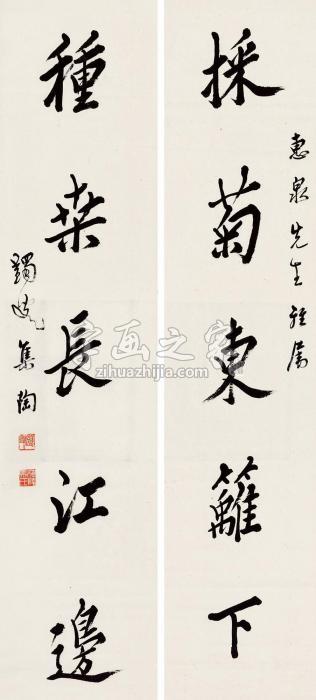 惠泉先生雅属
採菊東籬下
種桑長江邊
集陶
字画之家
zihuazhijia.com